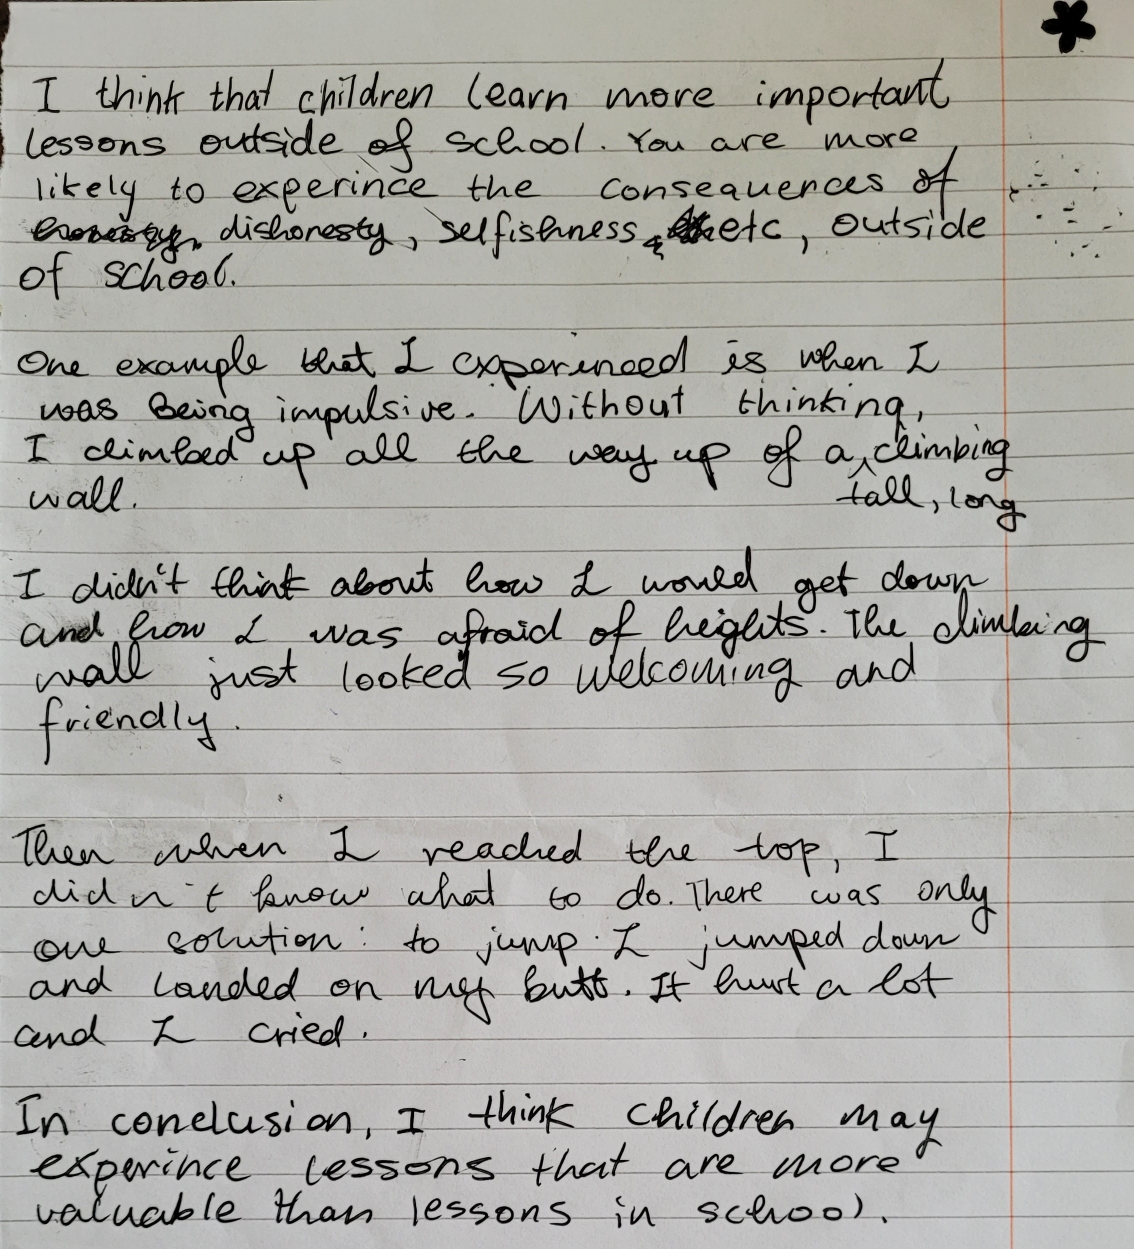 I think that children learn more important
lessons outside of school. You are more
likely to experince the consequences of
dishonesty, selfishness, etc, outside
of school.
One example that I experienced is when I
was Being impulsive. Without thinking,
I climbed up all the way up of a climbing
wall. tall, long
I didn't think about how I would get down
and how I was afraid of heights. The climbing
wall just looked so welcoming and
friendly.
Then when I reached the top, I
didn't know what to do. There was only
one solution: to jump. I jumped down
and landed on my butt. It hurt a lot
and I cried.
In conclusion, I think children may
experince lessons that are more
valuable than lessons in school.